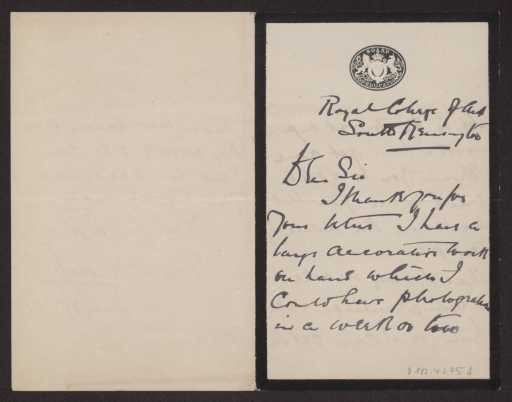 Royal College of Art
South Kensington
Dear Sir
I thank you for
your letter I have a
large decoration work
on hand which I
could have photographed
in a week or two